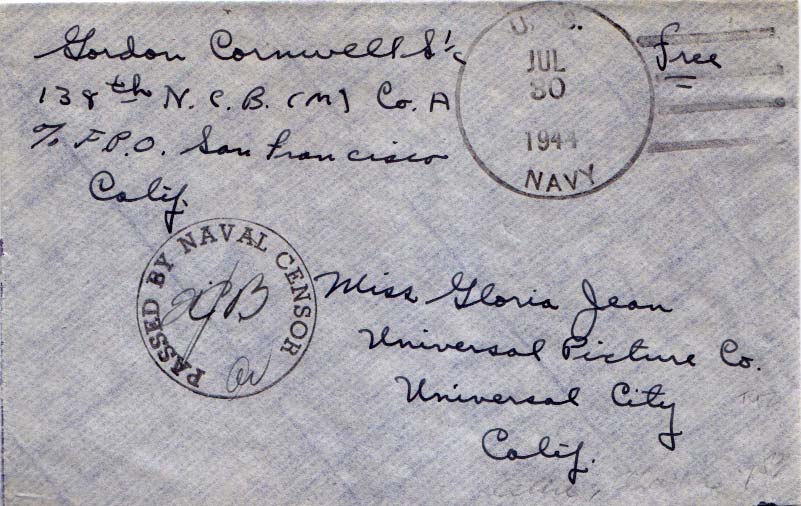 Gordon Cornwell S 1/c
138th N.C.B. (M) Co. A
℅ F.P.O. San Francisco
Calif.
U. S.
JUL
30
1944
NAVY
Free
PASSED BY NAVAL CENSOR
Miss Gloria Jean
Universal Picture Co.
Universal City
Calif.